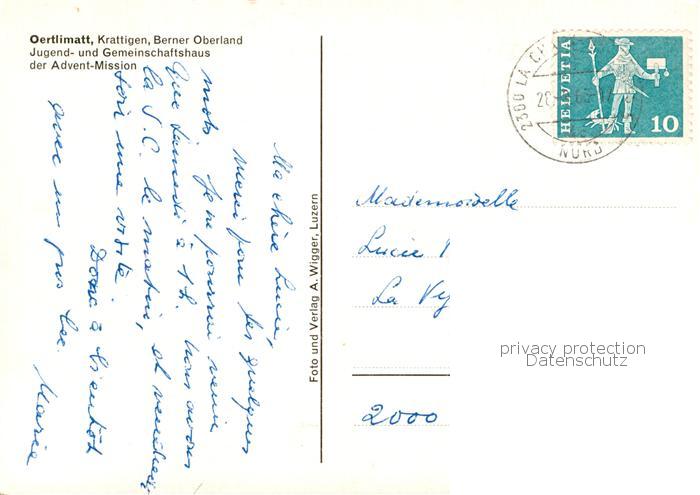 Oertlimatt, Krattigen, Berner Oberland
Jugend- und Gemeinschaftshaus
der Advent-Mission
Ma chère Lucie,
Merci pour tes quelques
mots. Je ne pourrai venir
que samedi à 1h. Nous avons
la S.C. le matin, et vendredi
soir une visite.
Donc à bientôt
avec un gros bec.
Marie
Foto und Verlag A. Wigger, Luzern
2300 LA
NORD
HELVETIA
10
Mademoiselle
Lucie
La
2000
privacy protection
Datenschutz